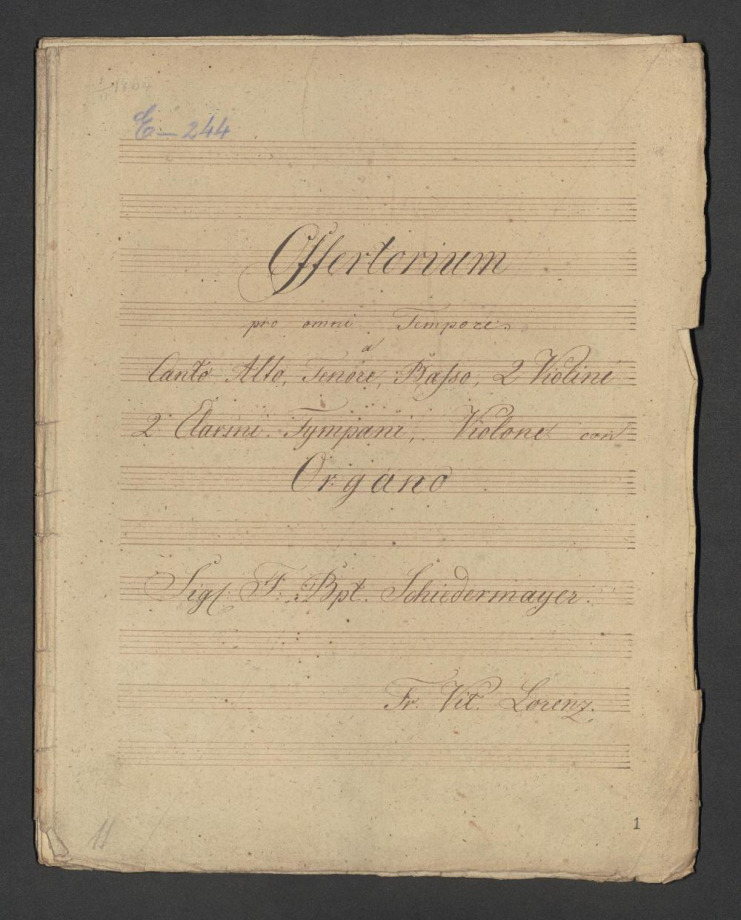 E–244
Offertorium
pro omni Tempore
a
Canto Alto, Tenore, Baſso, 2 Violini
2 Clarini Tympani, Violone con
Organo
Sigſ. F. Bpt. Schiedermayer.
Fr. Vit. Lorenz.
1